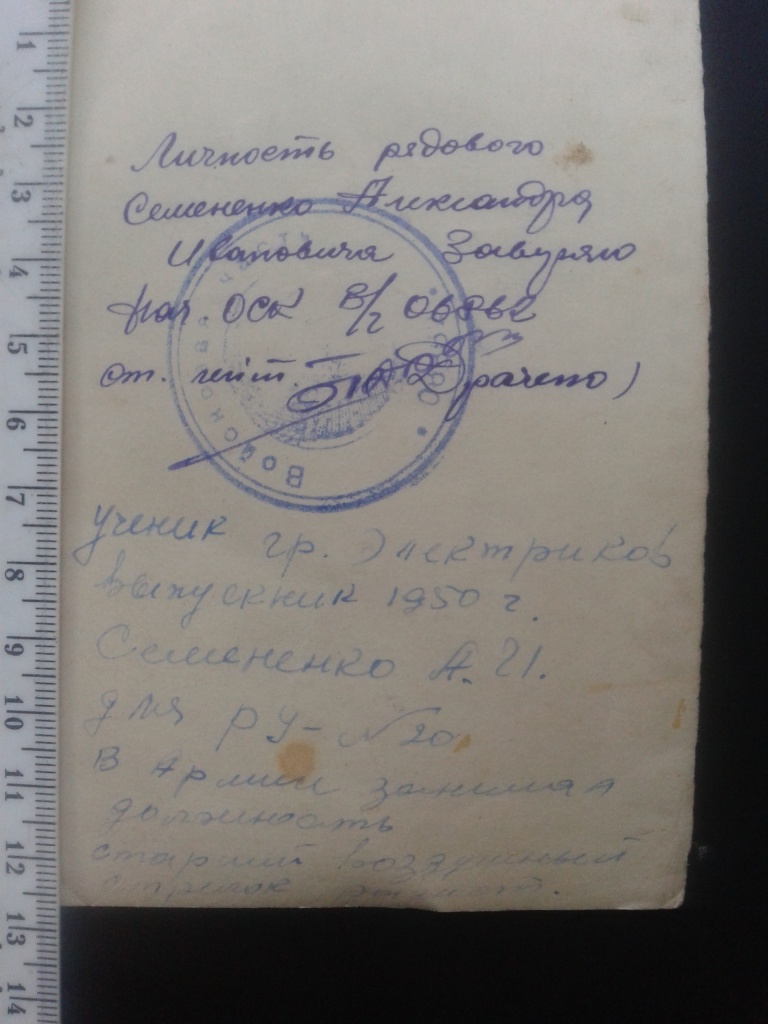 Личность рядового
Семененко Александра
Ивановича Заверяю
Нач. ОСК в/ч 06862
ст. лейт.
Войсковая часть
ученик гр. Электриков
выпускник 1950 г.
Семененко А. И.
для РУ-№20
В Армии занимал
должность
старший воздушный
стрелок
1
2
3
4
5
6
7
8
9
10
11
12
13
14